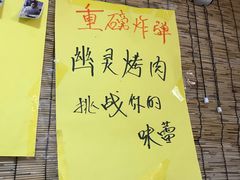 重磅炸弹
幽灵烤肉
挑战你的
味蕾